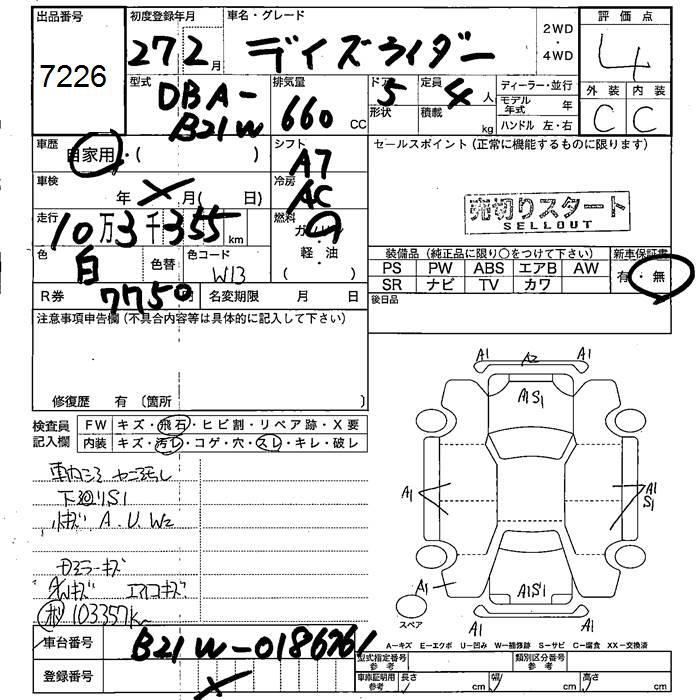 出品番号
7226
初度登録年月
27 2 月
車名・グレード
デイズライダー
2WD
・
4WD
評価点
4
外装 内装
C C
型式
DBA-
B21W
排気量
660 CC
ドア 5
形状
定員 4 人
積載 kg
ディーラー・並行
モデル年式 年
ハンドル 左・右
車歴
自家用・( )
シフト
A7
セールスポイント (正常に機能するものに限ります)
車検
年 X 月( 日)
冷房
AC
売切りスタート
SELLOUT
走行
10万3千355km
燃料
ガソリン
軽・油
色
白
色替
色コード
W13
装備品 (純正品に限り〇をつけて下さい)
PS PW ABS エアB AW
SR ナビ TV カワ
新車保証書
有・無
R券
7750 円
名変期限 月 日
後日品
注意事項申告欄 (不具合内容等は具体的に記入して下さい)
修復歴 有 〔箇所
検査員
記入欄
FW キズ・飛石・ヒビ割・リペア跡・X要
内装 キズ・汚レ・コゲ・穴・スレ・キレ・破レ
下廻りS1
A.U.W2
キズ
103357km
A1 A2 A1
A1S1
A1
A1
S1
A1
A1S1
A1
スペア
A-キズ E-エクボ U-凹み W-補修跡 S-サビ C-腐食 XX-交換済
車台番号
B21W-0186761
登録番号
X
型式指定番号
参考
類別区分番号
参考
車庫証明用
参考
長さ cm
幅 cm
高さ cm